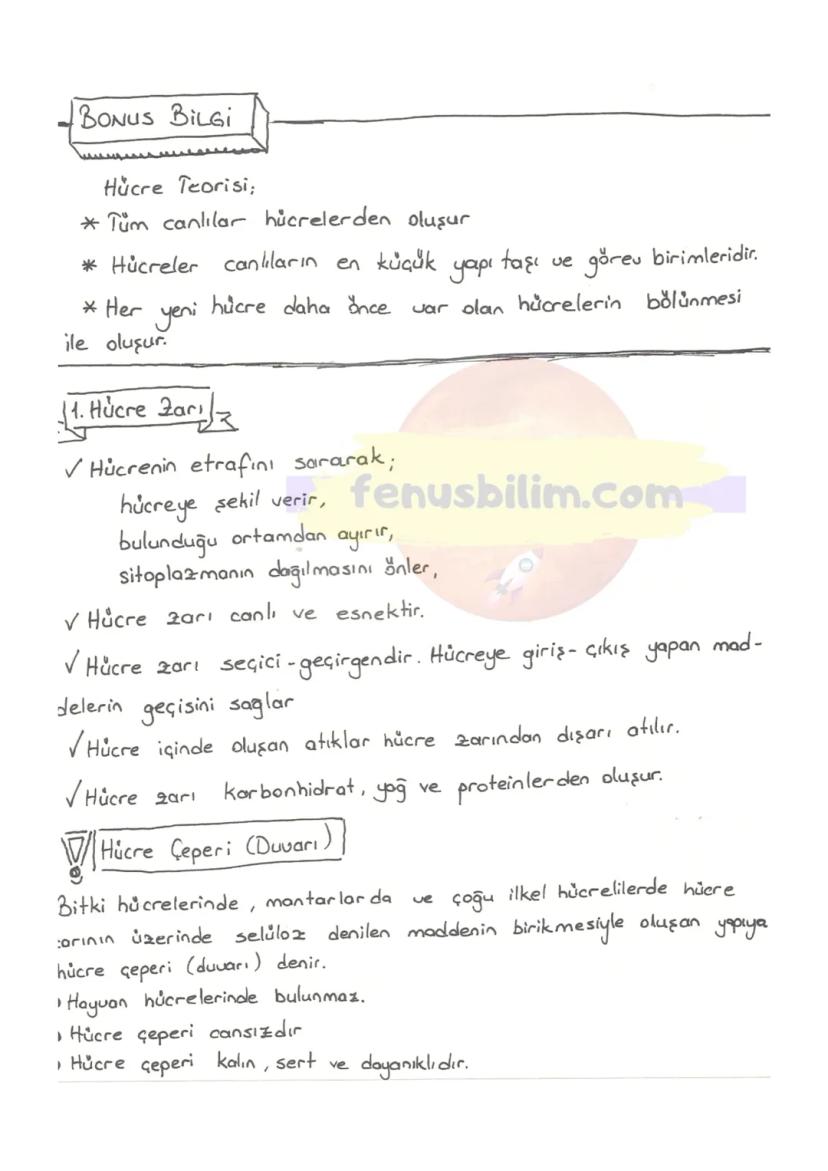 BONUS BİLGİ
Hücre Teorisi;
* Tüm canlılar hücrelerden oluşur
* Hücreler canlıların en küçük yapı taşı ve görev birimleridir.
* Her yeni hücre daha önce var olan hücrelerin bölünmesi
ile oluşur.
1. Hücre Zarı
✓ Hücrenin etrafını sararak;
fenusbilim.com
hücreye şekil verir,
bulunduğu ortamdan ayırır,
sitoplazmanın dağılmasını önler,
✓ Hücre zarı canlı ve esnektir.
✓ Hücre zarı seçici-geçirgendir. Hücreye giriş-çıkış yapan mad-
delerin geçisini sağlar
✓ Hücre içinde oluşan atıklar hücre zarından dışarı atılır.
✓ Hücre zarı karbonhidrat, yağ ve proteinlerden oluşur.
! Hücre Çeperi (Duvarı)
Bitki hücrelerinde, mantarlarda ve çoğu ilkel hücrelilerde hücre
zarının üzerinde selüloz denilen maddenin birikmesiyle oluşan yapıya
hücre çeperi (duvarı) denir.
Hayvan hücrelerinde bulunmaz.
Hücre çeperi cansızdır
Hücre çeperi kalın, sert ve dayanıklıdır.